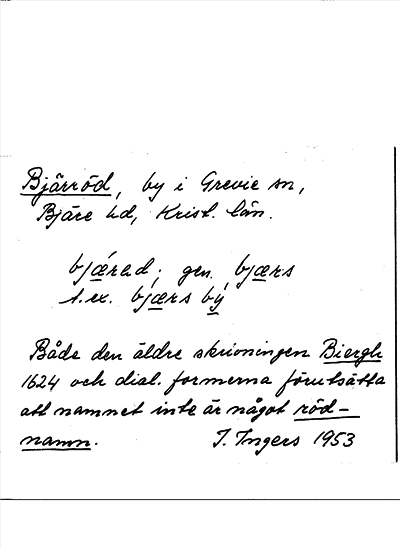 Bjärröd, by i Grevie sn,
Bjäre hd, Krist. län.
bjærad; gen. bjærs
t.ex. bjærs bý
Både den äldre skrivningen Biergh
1624 och dial. formerna förutsätta
att namnet inte är något röd-
namn. I. Ingers 1953